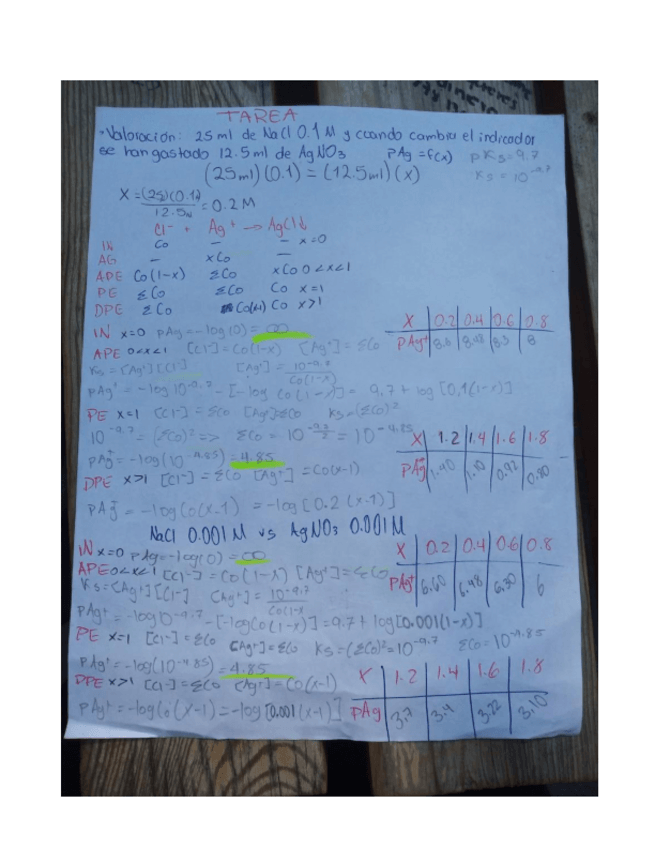 TAREA
• Valoración: 25 ml de NaCl 0.1 M y cuando cambia el indicador
se han gastado 12.5 ml de AgNO3 pAg = f(x) pKs = 9.7
Ks = 10^-9.7
(25ml)(0.1) = (12.5ml)(x)
X = (25)(0.1) / 12.5 = 0.2 M
Cl- + Ag+ → AgCl↓
IN Co — — x=0
AG — xCo —
APE Co(1-x) εCo xCo 0<x<1
PE εCo εCo Co x=1
DPE εCo Co(x-1) Co x>1
IN x=0 pAg = -log(0) = ∞
APE 0<x<1 [Cl-] = Co(1-x) [Ag+] = εCo
X | 0.2 | 0.4 | 0.6 | 0.8
pAg+ | 8.6 | 8.48 | 8.3 | 8
Ks = [Ag+][Cl-] [Ag+] = 10^-9.7 / Co(1-x)
pAg+ = -log 10^-9.7 - [-log Co(1-x)] = 9.7 + log[0.1(1-x)]
PE x=1 [Cl-] = εCo [Ag+]=εCo Ks = (εCo)^2
10^-9.7 = (εCo)^2 => εCo = 10^-9.7/2 = 10^-4.85
pAg+ = -log(10^-4.85) = 4.85
X | 1.2 | 1.4 | 1.6 | 1.8
pAg | 1.40 | 1.10 | 0.92 | 0.80
DPE x>1 [Cl-] = εCo [Ag+] = Co(x-1)
pAg+ = -log Co(x-1) = -log[0.2(x-1)]
NaCl 0.001 M vs AgNO3 0.001 M
IN x=0 pAg = -log(0) = ∞
APE 0<x<1 [Cl-] = Co(1-x) [Ag+] = εCo
X | 0.2 | 0.4 | 0.6 | 0.8
pAg+ | 6.60 | 6.48 | 6.30 | 6
Ks = [Ag+][Cl-] [Ag+] = 10^-9.7 / Co(1-x
pAg+ = -log10^-9.7 - [-logCo(1-x)] = 9.7 + log[0.001(1-x)]
PE x=1 [Cl-] = εCo [Ag+] = εCo Ks = (εCo)^2 = 10^-9.7 εCo = 10^-4.85
pAg+ = -log(10^-4.85) = 4.85
DPE x>1 [Cl-] = εCo [Ag+] = Co(x-1)
X | 1.2 | 1.4 | 1.6 | 1.8
pAg | 3.7 | 3.4 | 3.22 | 3.10
pAg+ = -log Co(x-1) = -log[0.001(x-1)]